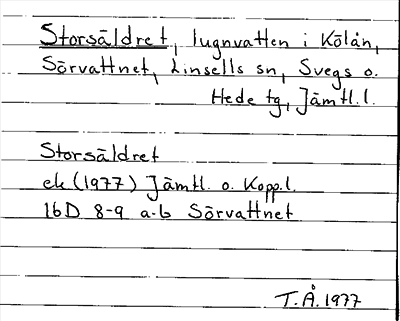 Storsäldret, lugnvatten i Kölån,
Sörvattnet, Linsells sn, Svegs o.
Hede tg, Jämtl.l.
Storsäldret
ek (1977) Jämtl. o. Kopp.l.
16D 8-9 a-b Sörvattnet
T.Å.1977